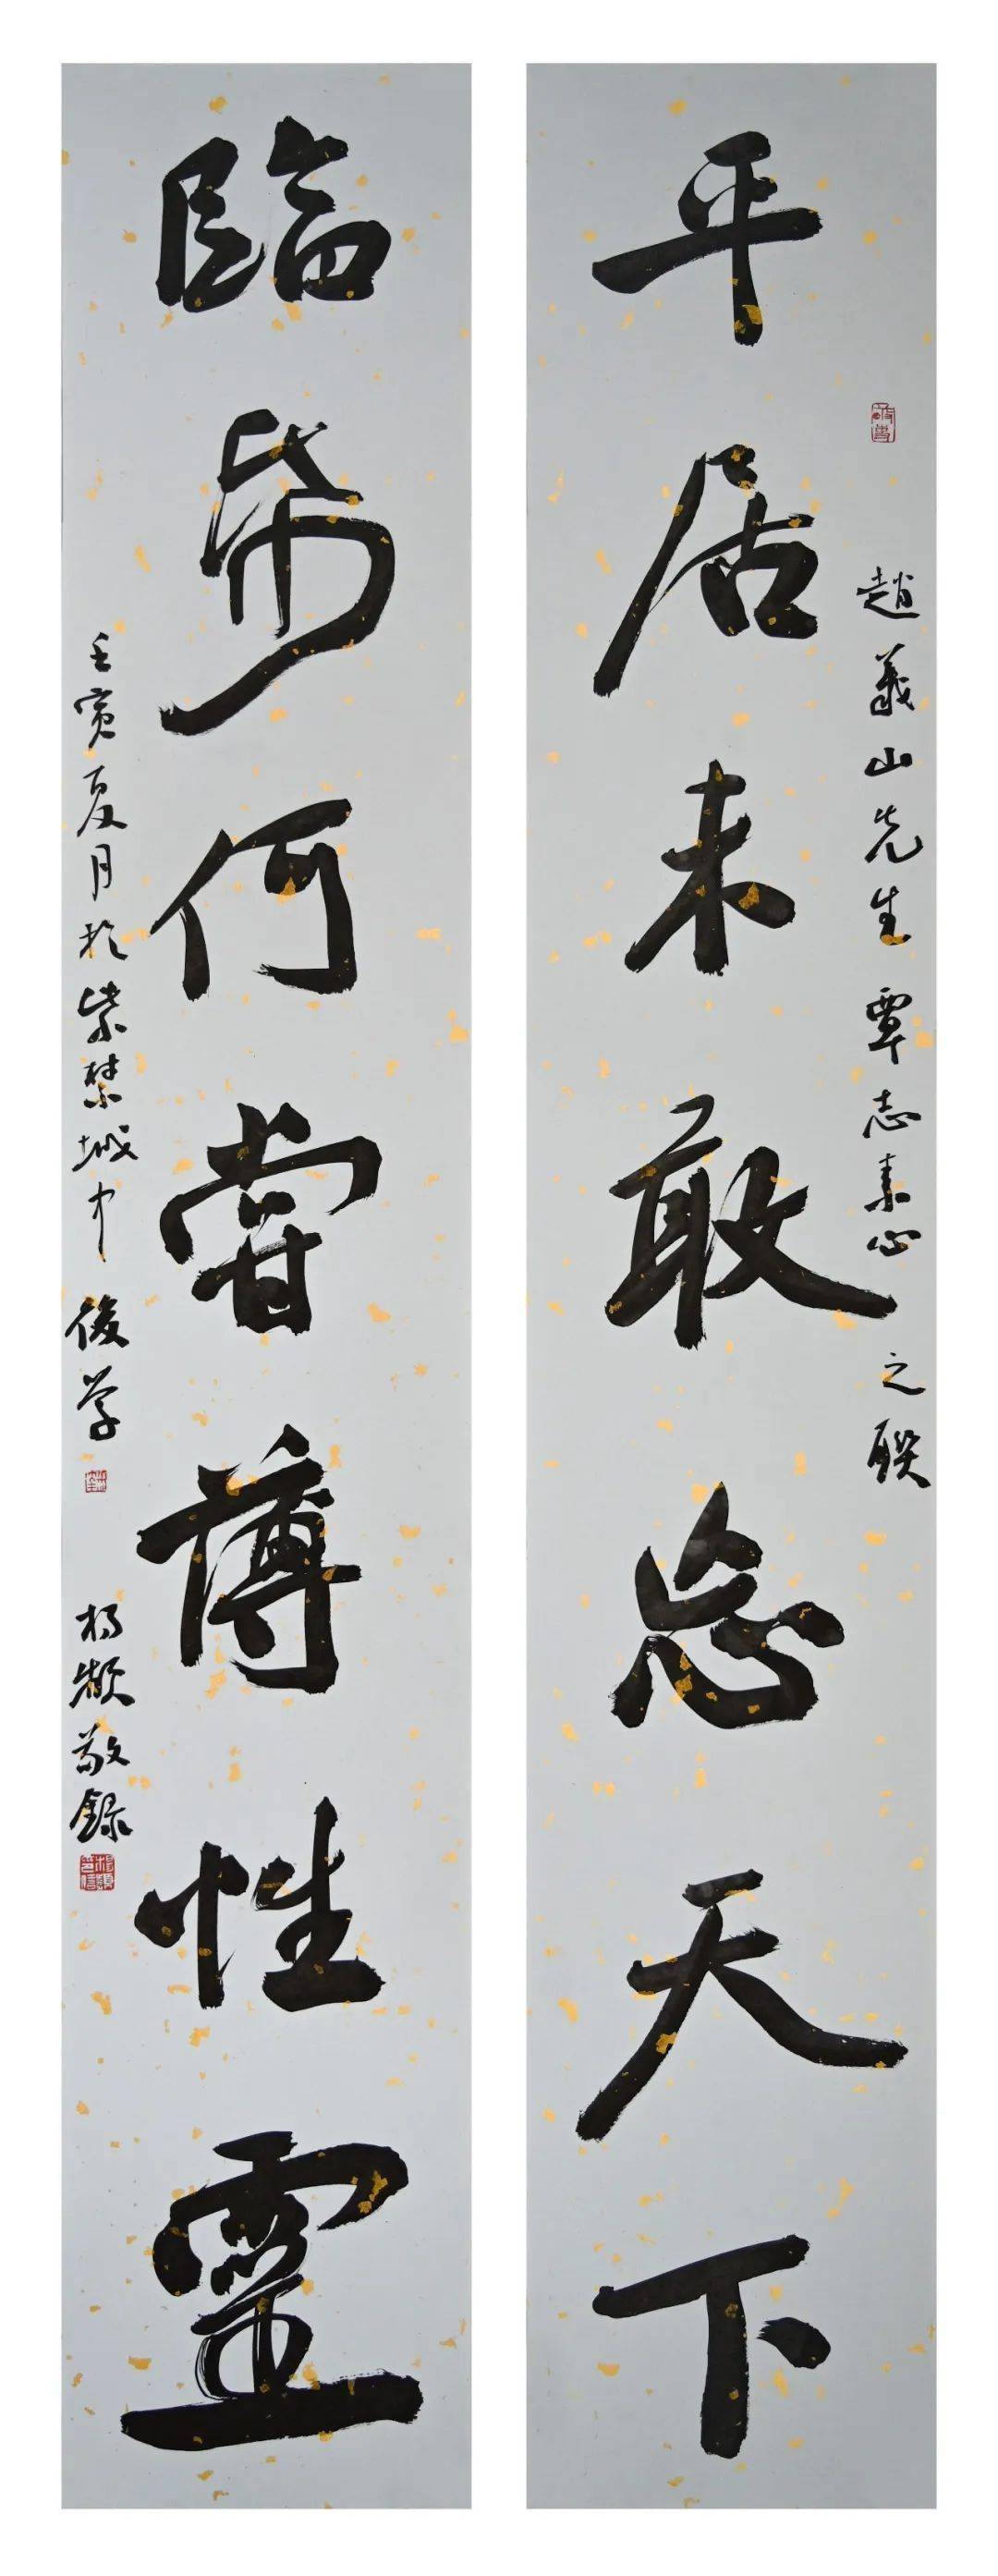 趙義山先生覃志素心之联
平居未敢忘天下
臨帋何嘗薄性靈
壬寅夏月於紫禁城中後学楊頻敬錄